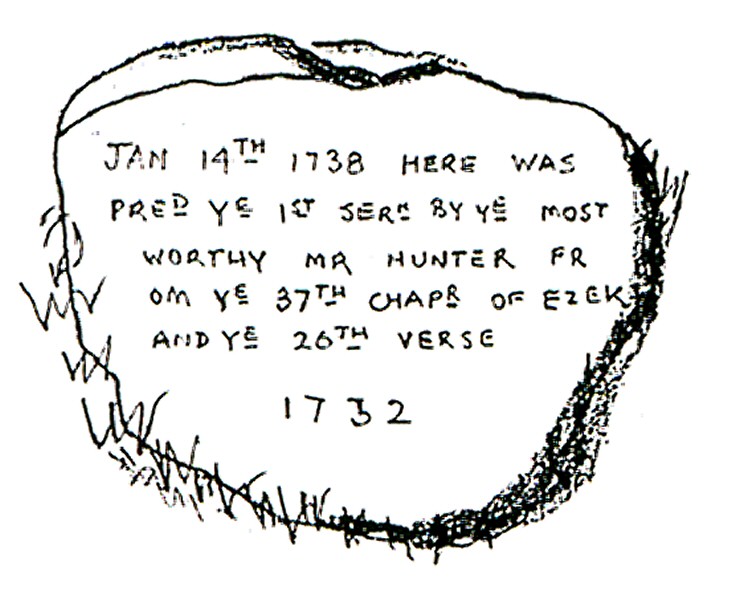 JAN 14TH 1738 HERE WAS
PRED YE 1ST SERN BY YE MOST
WORTHY MR HUNTER FR
OM YE 37TH CHAPR OF EZEK
AND YE 26TH VERSE
1732